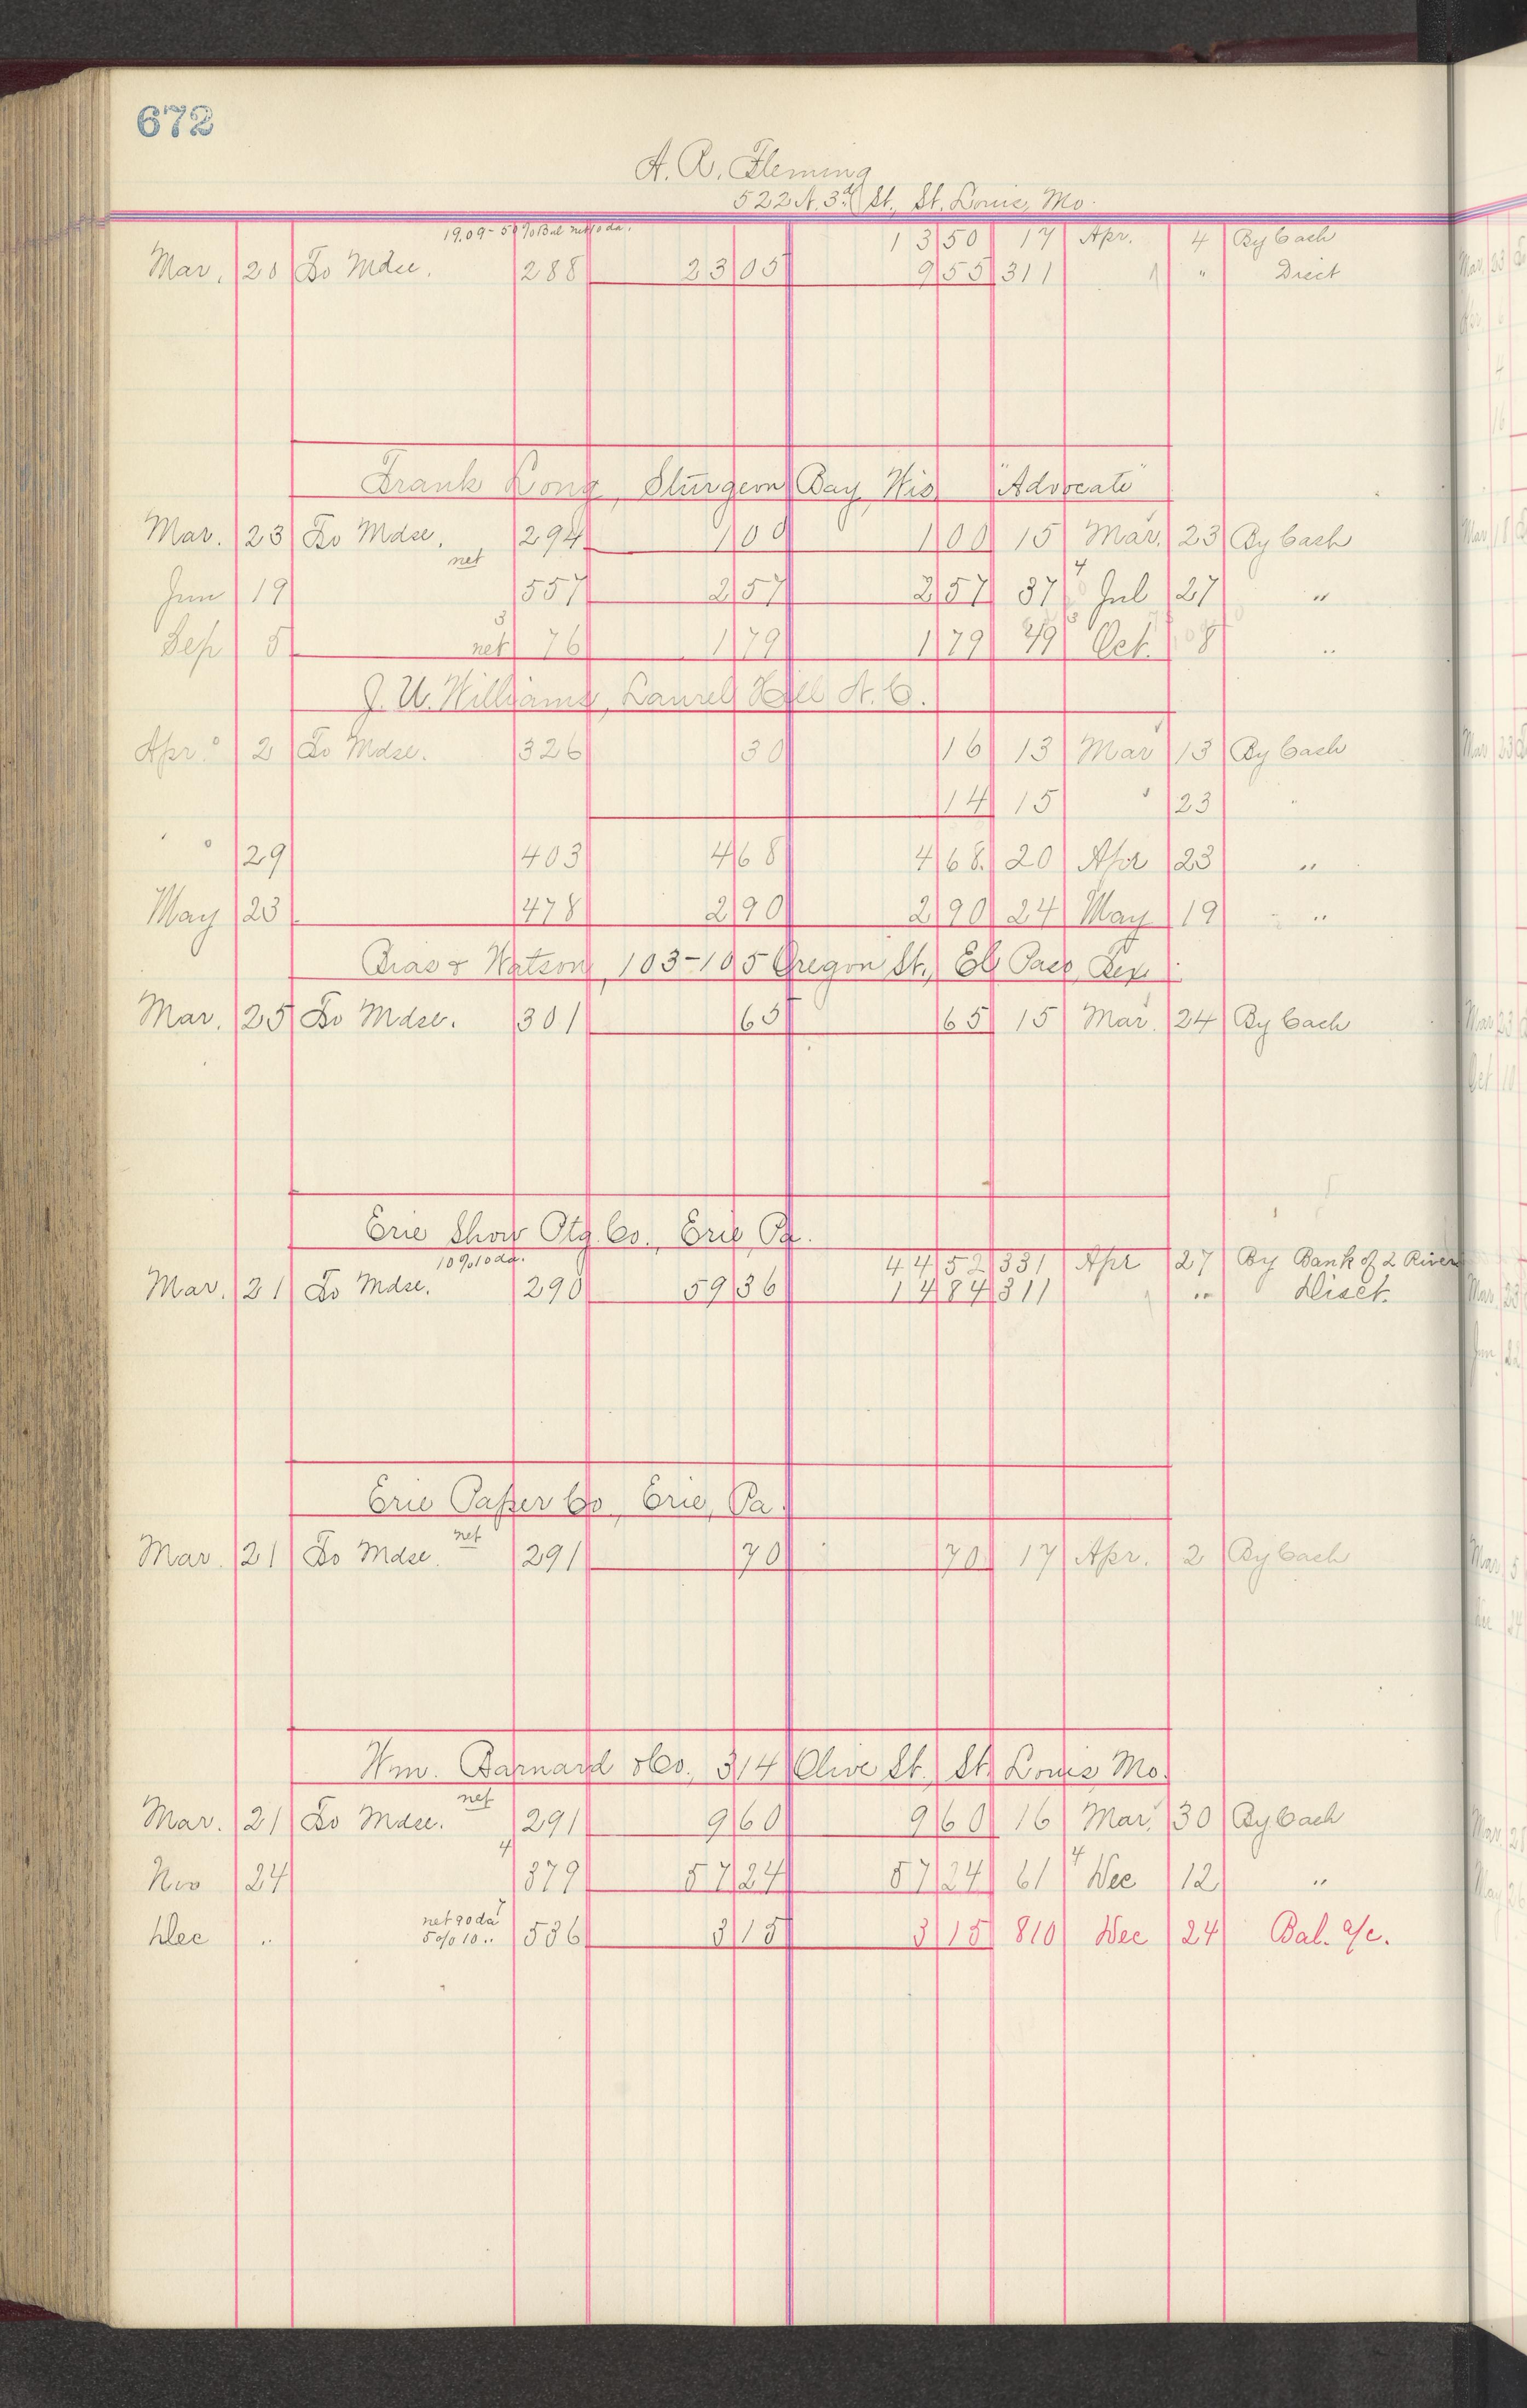 672
A. R. Fleming
522 N. 3d St., St. Louis, Mo.
19.09-50% Bal net 10 da. 13 50 17 Apr. 4 By Cash
Mar. 20 To Mdse. 288 23 05 9 55 311 " Disct
Frank Long, Sturgeon Bay, Wis "Advocate"
Mar. 23 To Mdse. 294 1 00 1 00 15 Mar. 23 By Cash
net
Jun 19 557 2 57 2 57 37 4 Jul 27 "
3
Sep 5 net 76 1 79 1 79 49 Oct. 8 "
J. W. Williams, Laurel Hill N.C.
Apr. 2 To Mdse. 326 30 16 13 Mar 13 By Cash
14 15 " 23 "
" 29 403 4 68 4 68 20 Apr 23 "
May 23 478 2 90 2 90 24 May 19 "
& Watson, 103-105 Oregon St., El Paso, Tex.
Mar. 25 To Mdse. 301 65 65 15 Mar. 24 By Cash
Erie Show Ptg. Co., Erie, Pa.
10% 10 da. 44 52 331 Apr 27 By Bank of 2 Rivers
Mar. 21 To Mdse. 290 59 36 14 84 311 " Disct.
Erie Paper Co., Erie, Pa.
net
Mar. 21 To Mdse. 291 70 70 17 Apr. 2 By Cash
Wm. Barnard & Co., 314 Olive St., St. Louis, Mo.
net
Mar. 21 To Mdse. 291 9 60 9 60 16 Mar. 30 By Cash
4
Nov 24 379 57 24 57 24 61 4 Dec 12 "
net 90 da
Dec " 5% 10 " 536 3 15 3 15 810 Dec 24 Bal. a/c.